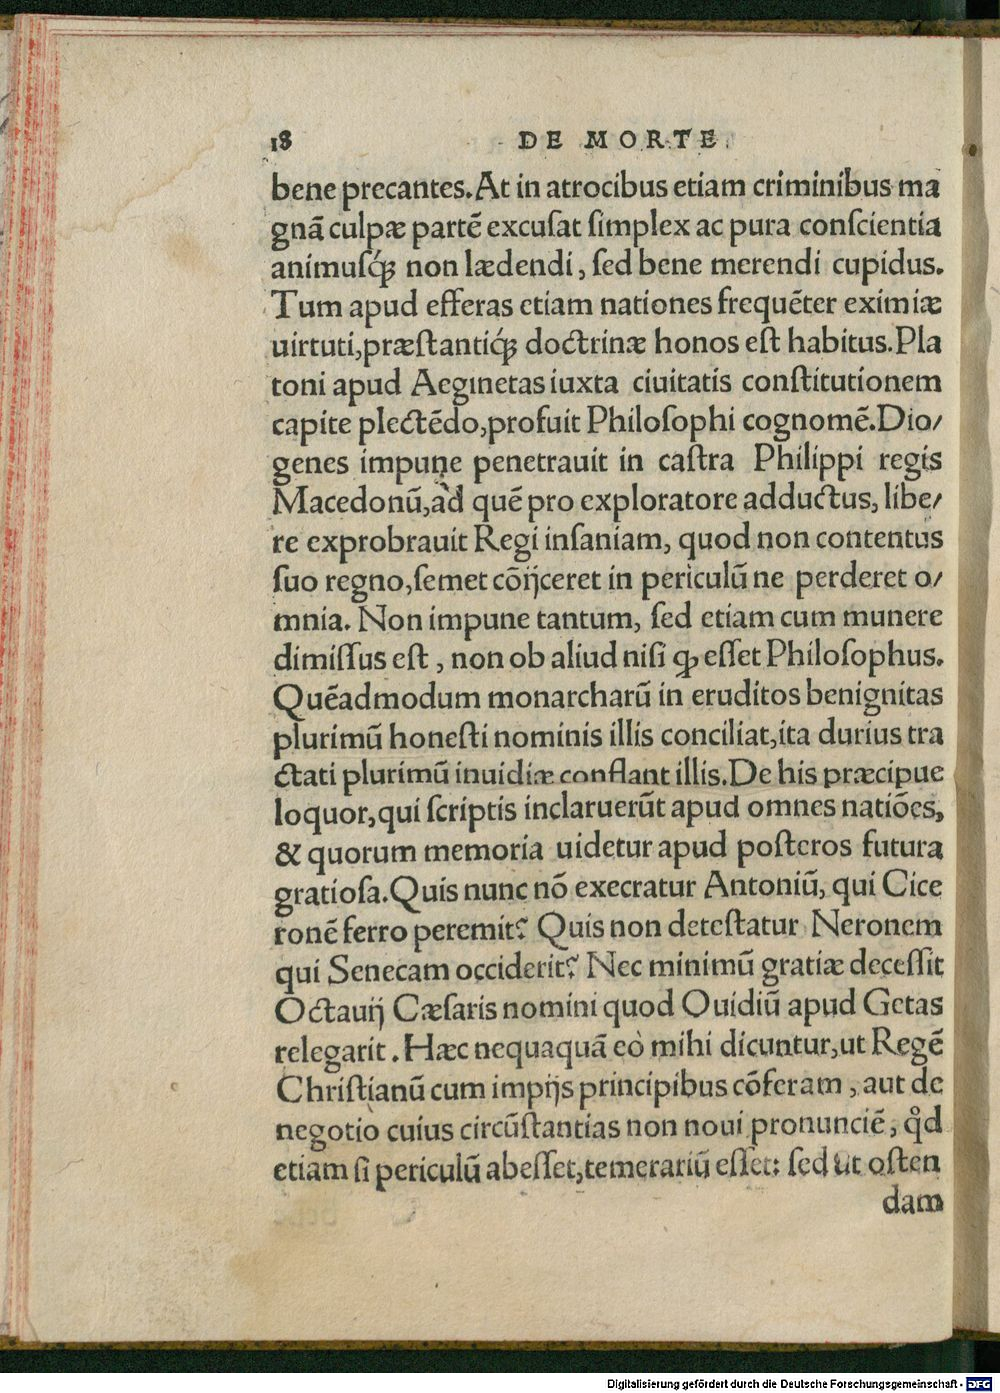 18 DE MORTE.
bene precantes. At in atrocibus etiam criminibus ma
gnã culpæ partẽ excuſat ſimplex ac pura conſcientia
animuſq́ꝫ non lædendi, ſed bene merendi cupidus.
Tum apud efferas etiam nationes frequẽter eximiæ
uirtuti, præſtantiq́ꝫ doctrinæ honos eſt habitus. Pla
toni apud Aeginetas iuxta ciuitatis conſtitutionem
capite plectẽdo, profuit Philoſophi cognomẽ. Dio/
genes impune penetrauit in caſtra Philippi regis
Macedonũ, ad quẽ pro exploratore adductus, libe/
re exprobrauit Regi inſaniam, quod non contentus
ſuo regno, ſemet cõijceret in periculũ ne perderet o/
mnia. Non impune tantum, ſed etiam cum munere
dimiſſus eſt, non ob aliud niſi ꝙ eſſet Philoſophus.
Quẽadmodum monarcharũ in eruditos benignitas
plurimũ honeſti nominis illis conciliat, ita durius tra
ctati plurimũ inuidiæ conflant illis. De his præcipue
loquor, qui ſcriptis inclaruerũt apud omnes natiões,
& quorum memoria uidetur apud poſteros futura
gratioſa. Quis nunc nõ execratur Antoniũ, qui Cice
ronẽ ferro peremit? Quis non deteſtatur Neronem
qui Senecam occiderit? Nec minimũ gratiæ deceſſit
Octauij Cæſaris nomini quod Ouidiũ apud Getas
relegarit. Hæc nequaquã eò mihi dicuntur, ut Regẽ
Chriſtianũ cum impijs principibus cõferam, aut de
negotio cuius circũſtantias non noui pronunciẽ, qͦd
etiam ſi periculũ abeſſet, temerariũ eſſet: ſed ut oſten
dam
Digitalisierung gefördert durch die Deutsche Forschungsgemeinschaft - DFG